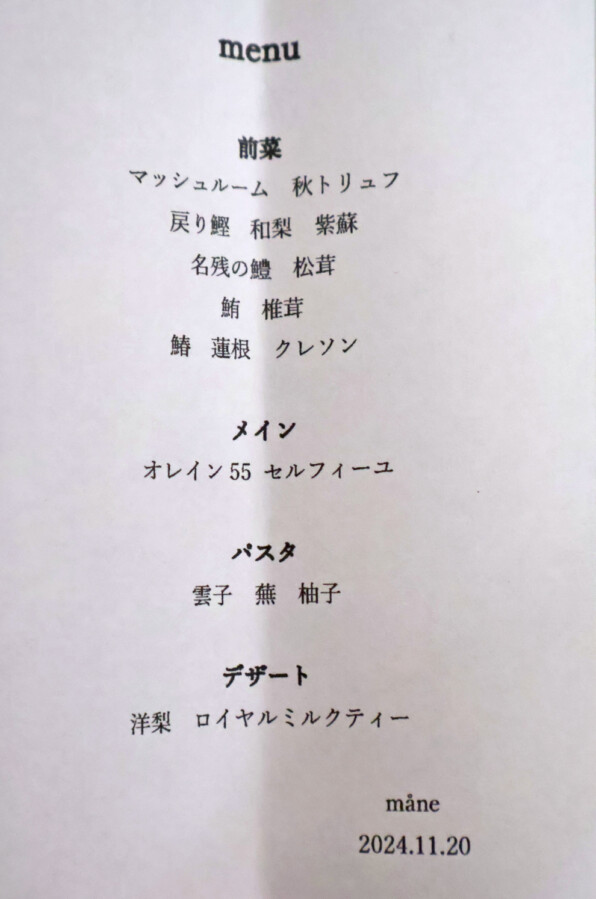 menu
前菜
マッシュルーム 秋トリュフ
戻り鰹 和梨 紫蘇
名残の鱧 松茸
鮪 椎茸
鰆 蓮根 クレソン
メイン
オレイン55 セルフィーユ
パスタ
雲子 蕪 柚子
デザート
洋梨 ロイヤルミルクティー
måne
2024.11.20